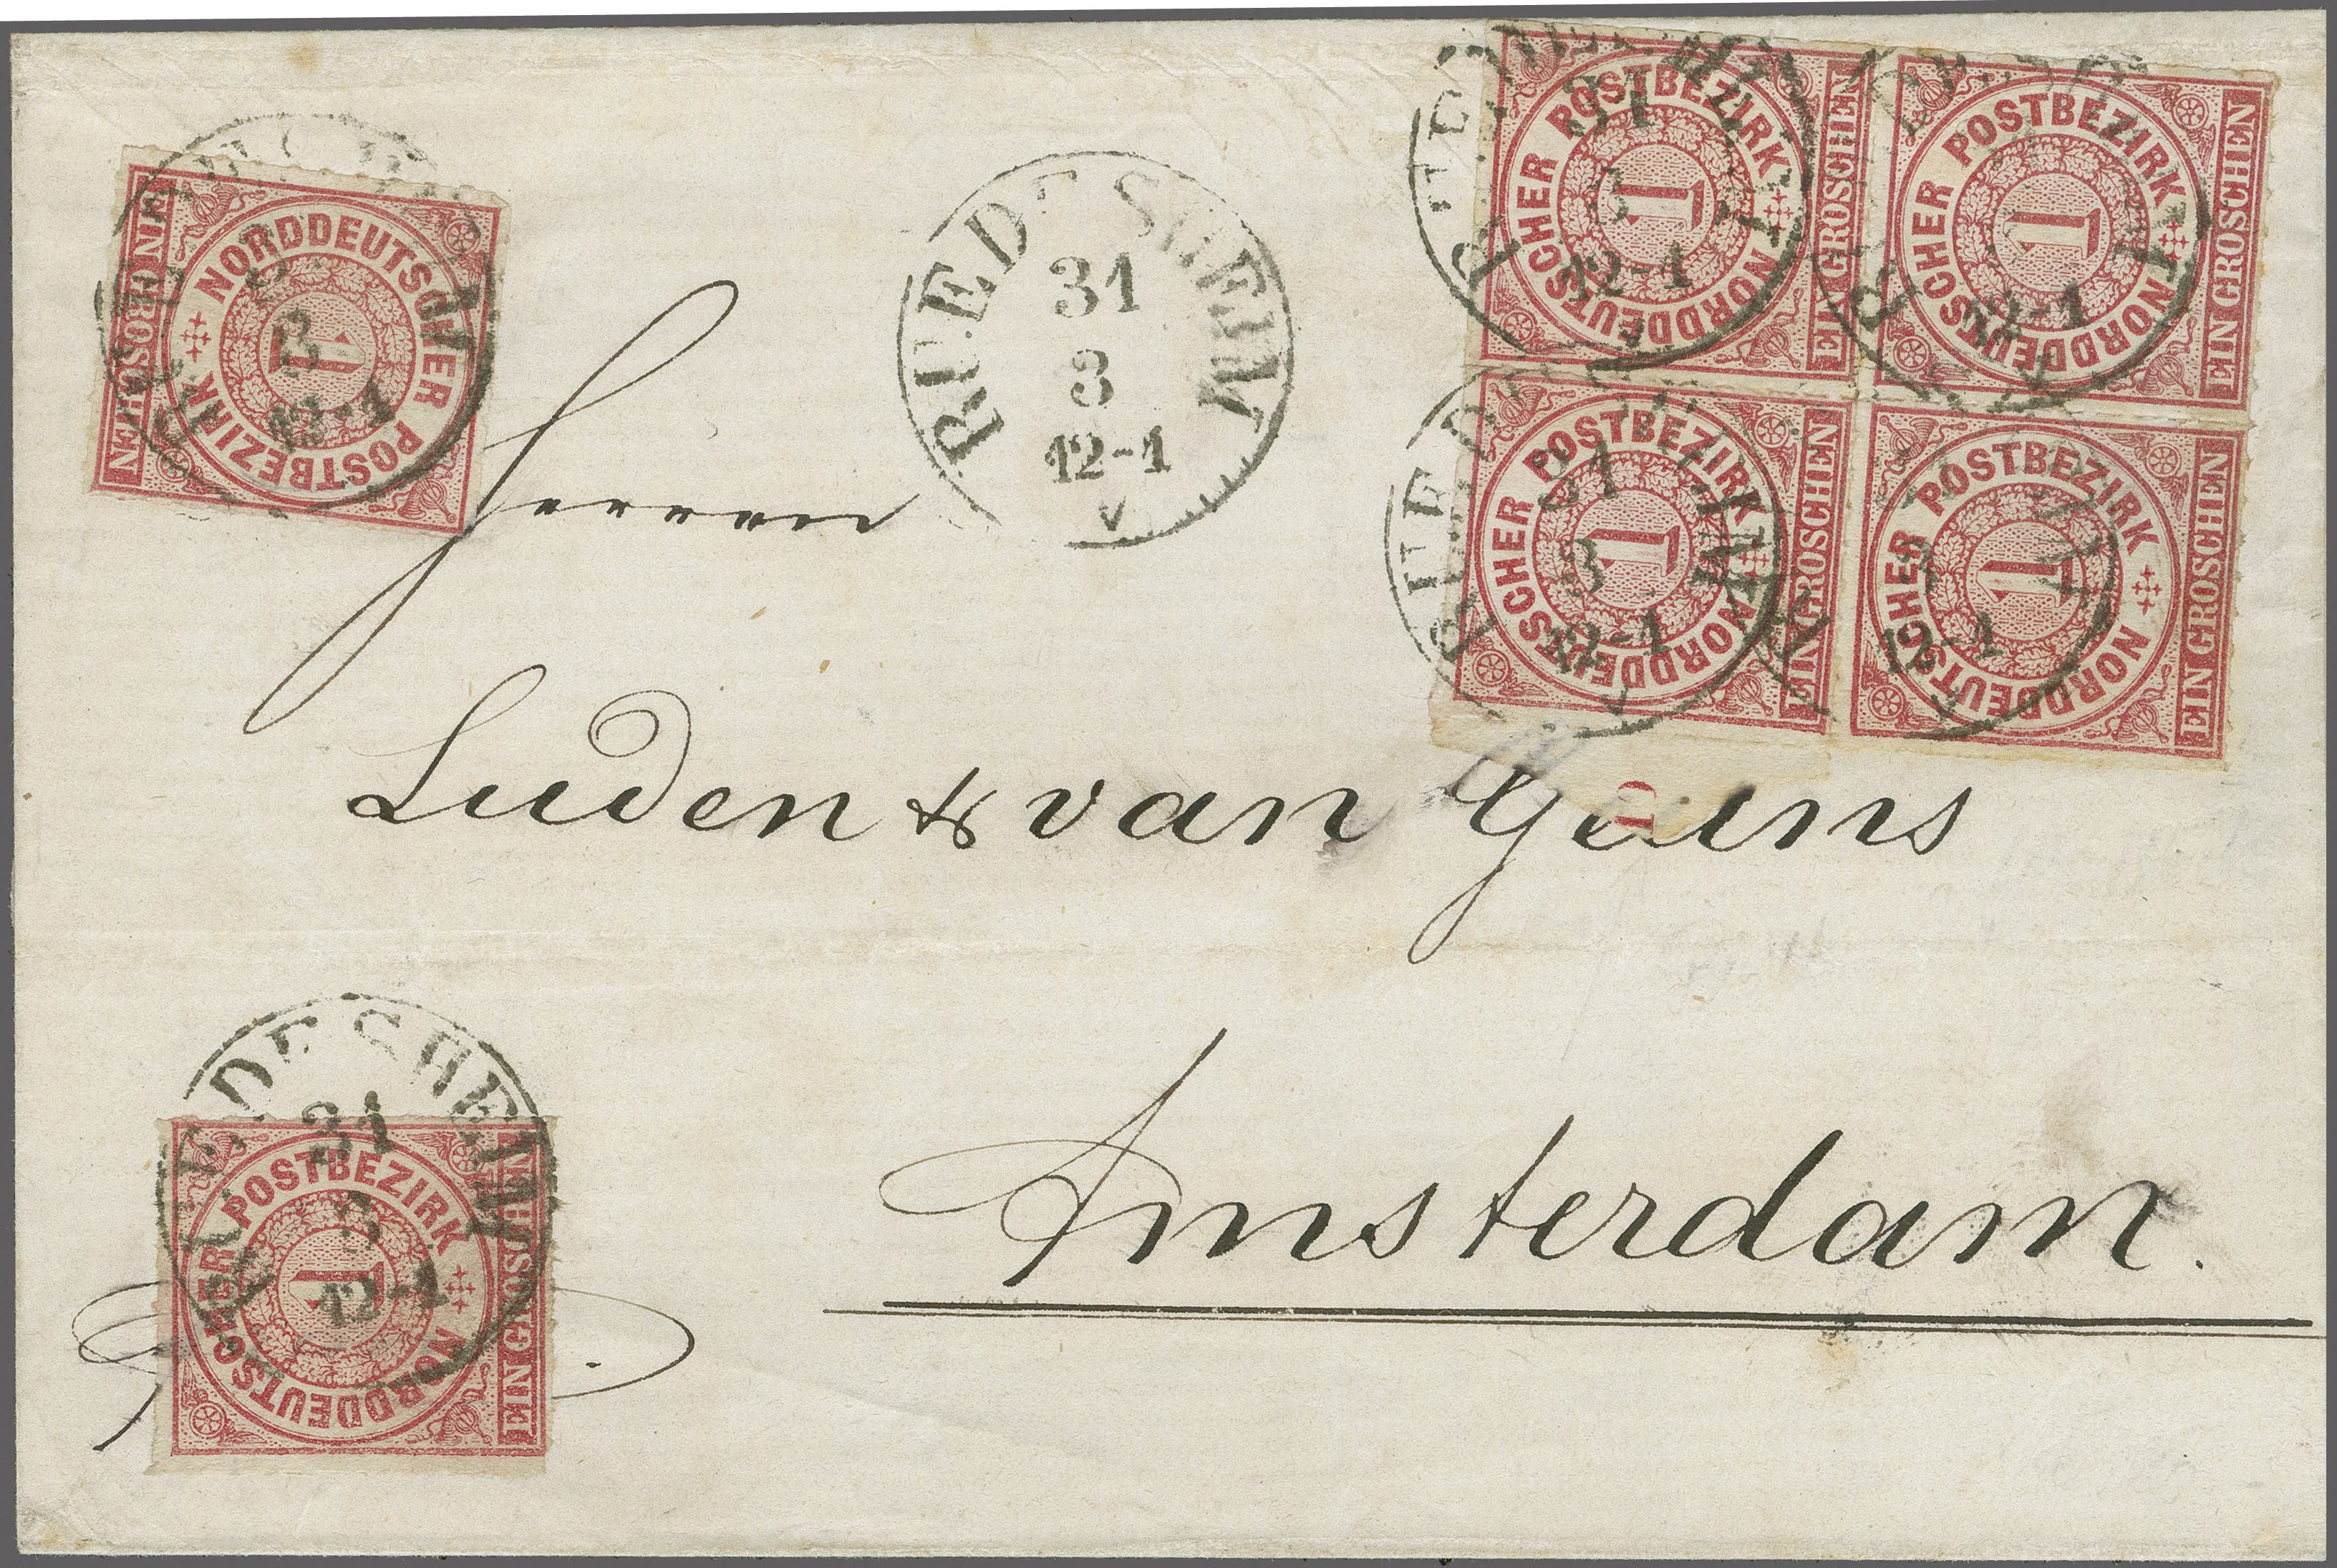 RUEDESHEIM
31
3
12-1
V
NORDDEUTSCHER POSTBEZIRK
1
EIN GROSCHEN
RUEDESHEIM
31
3
12-1
NORDDEUTSCHER POSTBEZIRK
1
EIN GROSCHEN
RUEDESHEIM
31
3
12-1
V
NORDDEUTSCHER POSTBEZIRK
1
EIN GROSCHEN
12-1
V
NORDDEUTSCHER POSTBEZIRK
1
EIN GROSCHEN
RUEDESHEIM
31
3
12-1
V
NORDDEUTSCHER POSTBEZIRK
1
EIN GROSCHEN
3
12-1
V
Herren
Luden & van Geuns
D
Amsterdam.
NORDDEUTSCHER POSTBEZIRK
1
EIN GROSCHEN
RUEDESHEIM
31
3
12-1